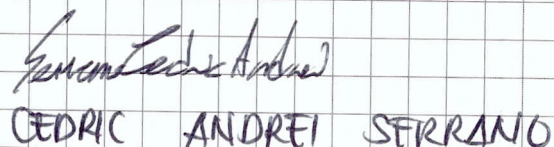 Serrano Cedric Andrei
CEDRIC ANDREI SERRANO